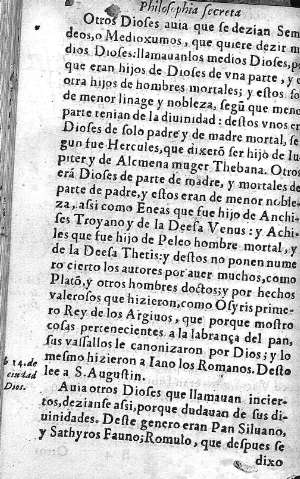 Philosophia secreta
Otros Dioses auia que se dezian Sem
deos, o Medioxumos, que quiere dezir m
dios Dioses: llamauanlos medios Dioses, po
que eran hijos de Dioses de vna parte, y d
otra hijos de hombres mortales; y estos so
de menor linage y nobleza, segũ que meno
parte tenian de la diuinidad: destos vnos er
Dioses de solo padre y de madre mortal, se
gun fue Hercules, que dixerõ ser hijo de Iu
piter y de Alcmena muger Thebana. Otros
erã Dioses de parte de madre, y mortales de
parte de padre, y estos eran de menor noble-
za, assi como Eneas que fue hijo de Anchi-
ses Troyano y de la Deesa Venus: y Achi-
les que fue hijo de Peleo hombre mortal, y
de la Deesa Thetis: y destos no ponen nume
ro cierto los autores por auer muchos, como
Platõ, y otros hombres doctos; y por hechos
valerosos que hizieron, como Osyris prime-
ro Rey de los Argiuos, que porque mostro
cosas pertenecientes a la labrança del pan,
sus vassallos le canonizaron por Dios; y lo
mesmo hizieron a Iano los Romanos. Desto
lee a S. Augustin.
b 14. de
ciudad
Dios.
Auia otros Dioses que llamauan incier-
tos, dezianse assi, porque dudauan de sus di-
uinidades. Deste genero eran Pan Siluano,
y Sathyros Fauno; Romulo, que despues se
dixo